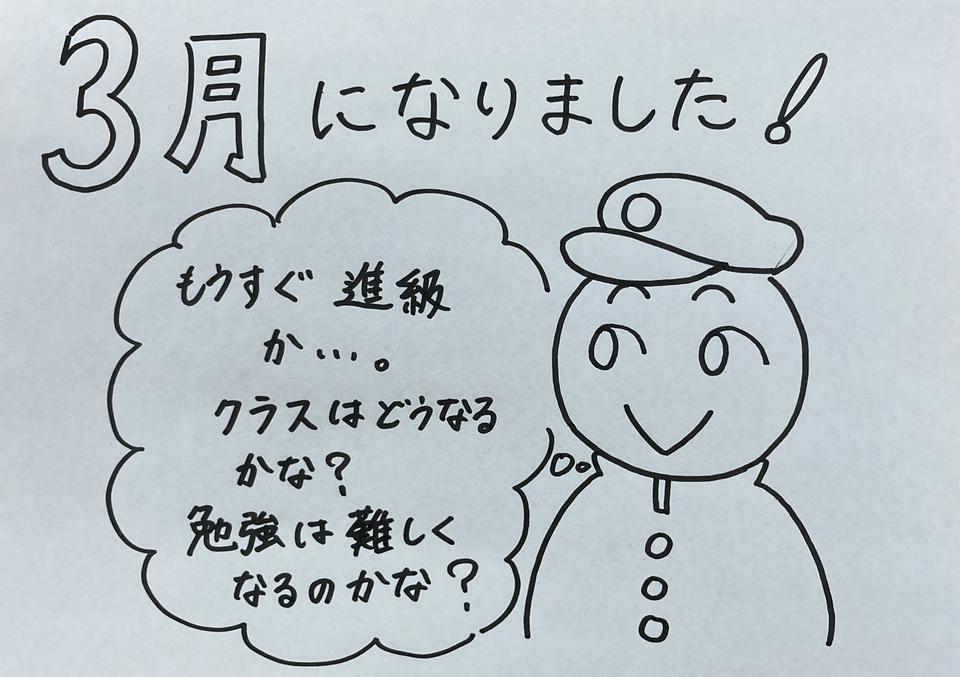 3月になりました!
もうすぐ進級
か…。
クラスはどうなる
かな?
勉強は難しく
なるのかな?